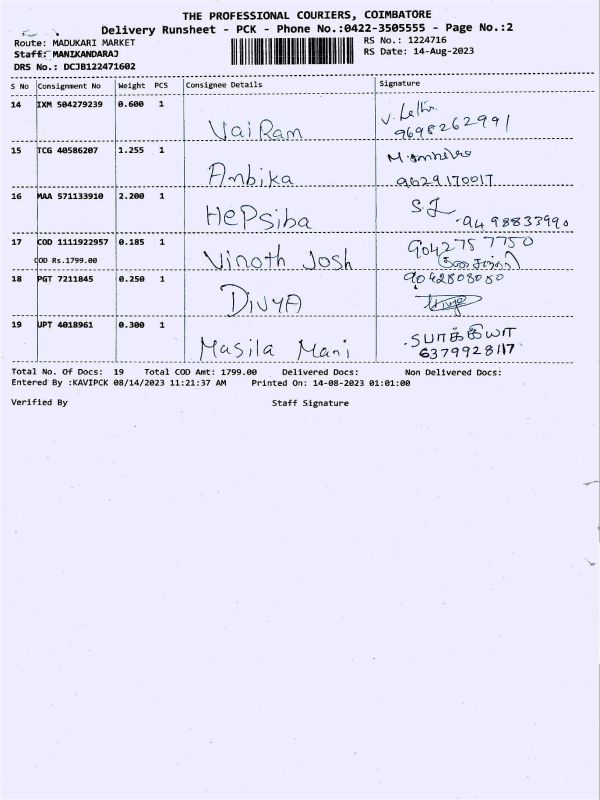 THE PROFESSIONAL COURIERS, COIMBATORE
Delivery Runsheet - PCK - Phone No.:0422-3505555 - Page No.:2
Route: MADUKARI MARKET
RS No.: 1224716
Staff: MANIKANDARAJ
RS Date: 14-Aug-2023
DRS No.: DCJB122471602
S No Consignment No Weight PCS Consignee Details Signature
14 IXM 504279239 0.600 1 Vai Ram
9698262991
15 TCG 40586207 1.255 1 Ambika
9629170017
16 MAA 571133910 2.200 1 HePsiba
9498833990
17 COD 1111922957 0.185 1 Vinoth Josh 9042757750
COD Rs.1799.00
18 PGT 7211845 0.250 1 DIVYA 9042808080
19 UPT 4018961 0.300 1 Masila Mani
6379928117
Total No. Of Docs: 19 Total COD Amt: 1799.00 Delivered Docs: Non Delivered Docs:
Entered By :KAVIPCK 08/14/2023 11:21:37 AM Printed On: 14-08-2023 01:01:00
Verified By Staff Signature